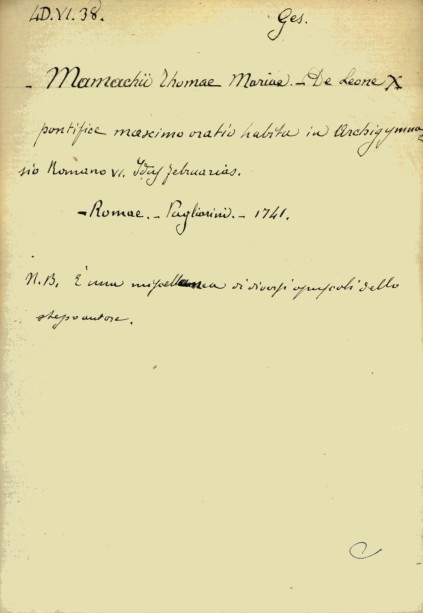 4D.VI.38. Ges.
- Mamachii Thomae Mariae. - De Leone X
pontifice maximo oratio habita in Archigymna-
sio Romano VI. Idus februarias.
- Romae. - Pagliarini. - 1741.
N.B. È una miscellanea di diversi opuscoli dello
stesso autore.